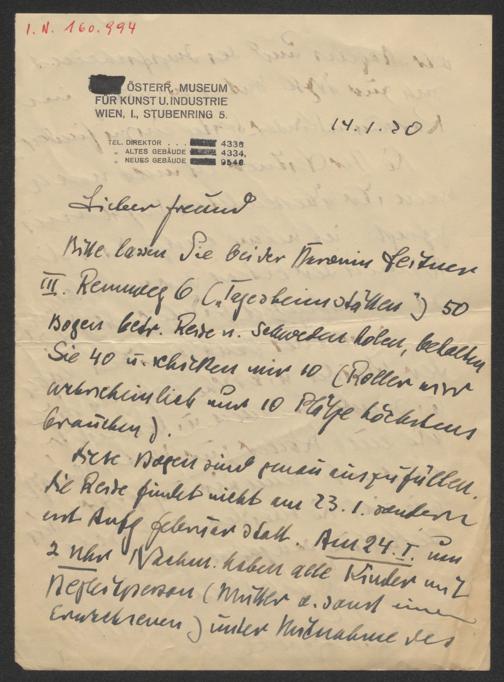 I.N. 160.994
ÖSTERR. MUSEUM
FÜR KUNST U. INDUSTRIE
WIEN, I., STUBENRING 5.
TEL. DIREKTOR . . . 4336
ALTES GEBÄUDE 4334,
NEUES GEBÄUDE 9548
14.1.20
Lieber Freund
Bitte lassen Sie bei der Baronin Leitner
III. Rennweg 6 („Tagesheimstätten") 50
Bogen betr. Reise n. Schweden holen, behalten
Sie 40 u. schicken mir 10 (Roller wird
wahrscheinlich nur 10 Plätze höchstens
brauchen).
Diese Bogen sind genau auszufüllen.
Die Reise findet nicht am 23.1. sondern
erst Anfg Februar statt. Am 24.I. um
2 Uhr Nachm. haben alle Kinder mit
Begleitperson (Mutter o. sonst einen
Erwachsenen) unter Mitnahme des